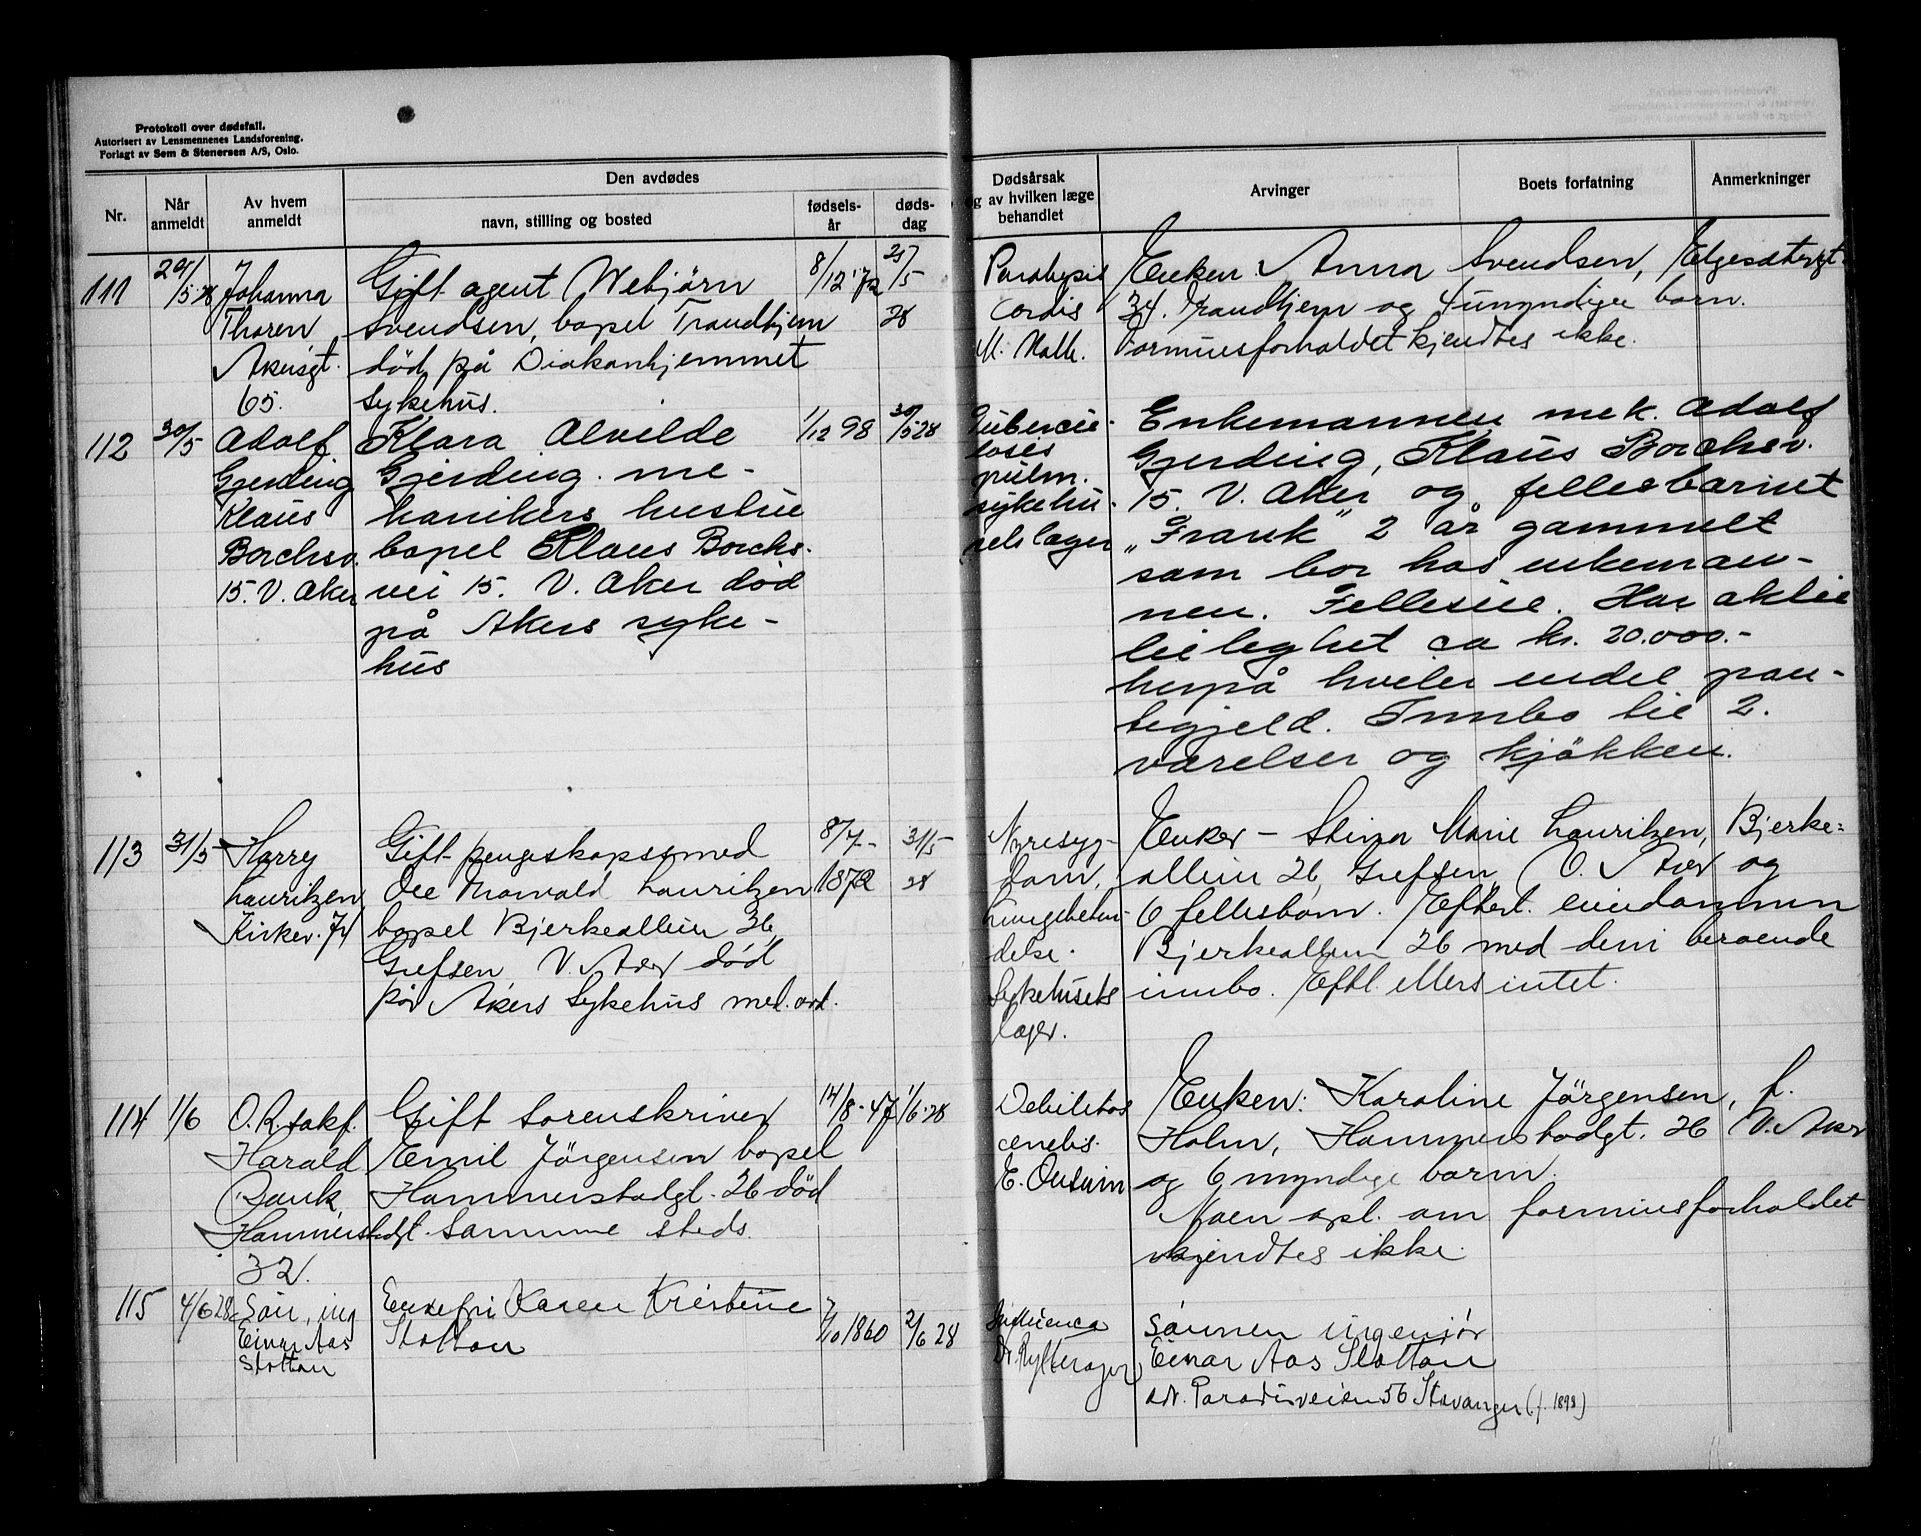 Protokoll over dødsfall.
Autorisert av Lensmennenes Landsforening.
Forlagt av Sem & Stenersen A/S, Oslo.
Nr.
Når anmeldt
Av hvem anmeldt
Den avdødes
navn, stilling og bosted
fødsels-
år
døds-
dag
Dødsårsak
og av hvilken læge
behandlet
Arvinger
Boets forfatning
Anmerkninger
111
29/5 28
Johanna
Thoren,
Akersgt.
65.
Gift agent Webjørn
Svendsen, bopel Trondhjem
død på Diakonhjemmet
Sykehus.
8/12 72
25/5
28
cordis
Enken: Anna Svendsen,
34. Trondhjem og 4 umyndige barn.
Formuesforholdet kjendtes ikke.
112
30/5
Adolf
Gjerding
Klaus
Borchsv.
15. V. Aker
Klara Alvilde
Gjerding. me-
kanikers hustru
bopel Klaus Borchs.
vei 15. V. Aker død
på Akers syke-
hus
1/12 98
30/5 28
Tubercu-
losis
pulm.
sykehu-
sets læger
Enkemannen mek. Adolf
Gjerding, Klaus Borchsv.
15. V. Aker og fellesbarnet
"Frank" 2 år gammelt
som bor hos enkeman-
nen. Felleseie. Har aktie
leilighet ca kr. 20.000.-
herpå hviler endel pan-
tegjeld. Innbo til 2.
værelser og kjøkken.
113
31/5
Harry
Lauritzen
Kirkev.
Gift pengeskapsmed
Ole Lauritzen
bopel Bjerkealleen 26
Grefsen V. Aker død
på Akers Sykehus med. avd.
8/7-
1872
31/5
28
Nyresyg-
dom,
Sykehusets
læger.
Enken - Stina Marie Lauritzen, Bjerke=
alleen 26, Grefsen, V. Aker og
6 fellesbarn. Efterl. eiendommen
Bjerkealleen 26 med deri beroende
innbo. Eftl. ellers intet.
114
1/6
O.R.sakf.
Harald
Hammerstadgt.
32.
Gift sorenskriver
Emil Jörgensen bopel
Hammerstadgt. 26 død
samme steds.
14/8-47
1/6-28
Debilitas
Enken: Karoline Jörgensen, f.
Holm, Hammerstadgt. 26 V. Aker
og 6 myndige barn.
Noen opl. om formuesforholdet
kjendtes ikke.
115
4/6 28
Sön, ing
Einar Aas
Slottan
Enkefru Karen Kristine
Slottan
7/10 1860
2/6 28
Influenca
Dr. Rytterager
sönnen ingenjör
Einar Aas Slottan
adr. Paradisveien 56 Stavanger (f. 1898)